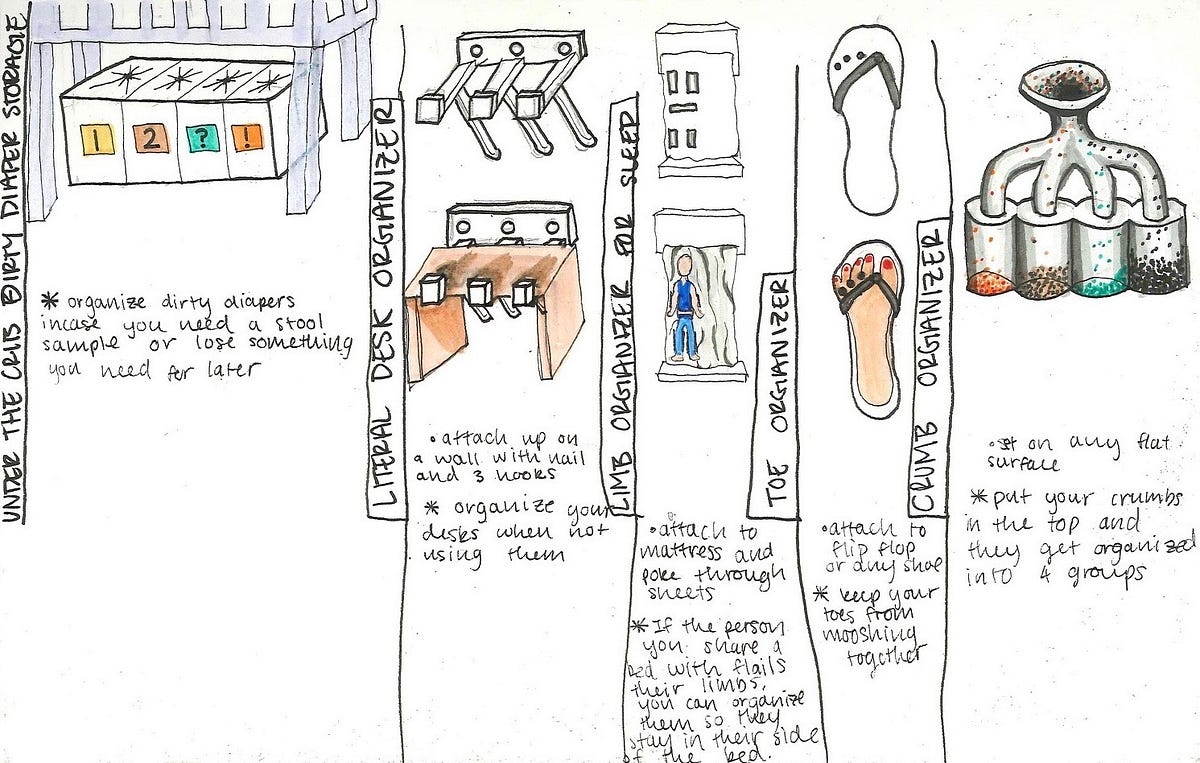 UNDER THE CRIB DIRTY DIAPER STORAGE
1 2 ? !
* organize dirty diapers
incase you need a stool
sample or lose something
you need for later
LITERAL DESK ORGIANIZER
• attach up on
a wall with nail
and 3 hooks
* organize your
desks when not
using them
LIMB ORGIANIZER FOR SLEEP
• attach to
mattress and
poke through
sheets
* If the person
you share a
bed with flails
their limbs,
you can organize
them so they
stay in their side
of the bed.
TOE ORGIANIZER
• attach to
flip flop
or any shoe
* keep your
toes from
mooshing
together
CRUMB ORGIANIZER
• set on any flat
surface
* put your crumbs
in the top and
they get organized
into 4 groups